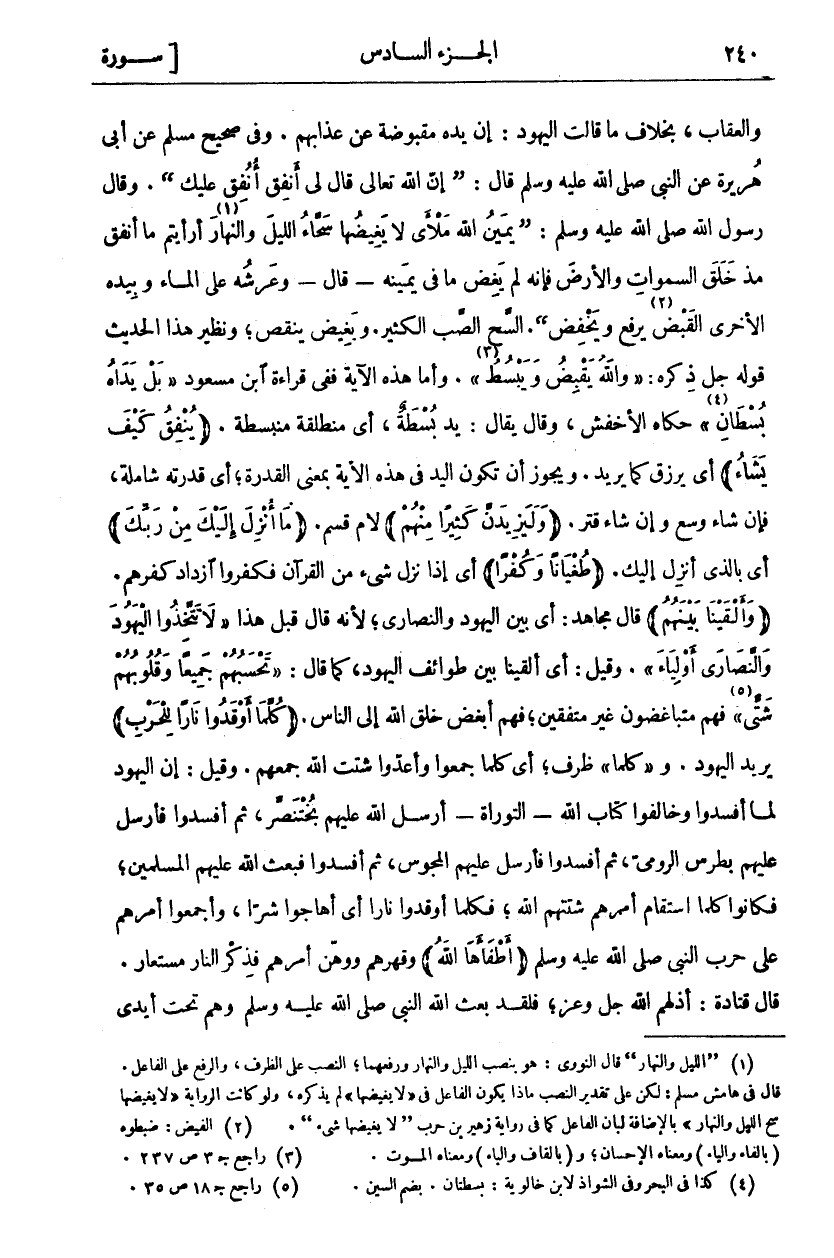 ٢٤٠ الجزء السادس [ سورة
والعقاب ، بخلاف ما قالت اليهود : إن يده مقبوضة عن عذابهم . وفى صحيح مسلم عن أبى
هُريرة عن النبى صلى الله عليه وسلم قال : ” إنّ الله تعالى قال لى أَنفِق أُنْفِق عليك “ . وقال
رسول الله صلى الله عليه وسلم : ” يمَينُ الله مَلْأَى لا يَغِيضُها سَحَّاءُ الليلَ والنهارَ (١) أرأيتم ما أنفق
مذ خَلَق السموات والأرضَ فإنه لم يَغِض ما فى يمَينه — قال — وعَرشُه على الماء وبيده
الأخرى القَبْض (٢) يرفع ويَخْفِض “. السَّح الصَّب الكثير. ويَغِيض ينقص؛ ونظير هذا الحديث
قوله جل ذِكره: «وَاللَّهُ يَقْبِضُ وَيَبْسُطُ (٣)» . وأما هذه الآية ففى قراءة ٱبن مسعود «بَلْ يَدَاهُ
بُسْطَانِ (٤)» حكاه الأخفش ، وقال يقال : يد بُسْطَةٌ ، أى منطلقة منبسطة . ﴿يُنْفِقُ كَيْفَ
يَشَاءُ﴾ أى يرزق كما يريد . ويجوز أن تكون اليد فى هذه الأية بمعنى القدرة؛ أى قدرته شاملة،
فإن شاء وسع وإن شاء قتر. ﴿وَلَيَزِيدَنَّ كَثِيرًا مِنْهُمْ﴾ لام قسم. ﴿مَا أُنْزِلَ إِلَيْكَ مِنْ رَبِّكَ﴾
أى بالذى أنزل إليك. ﴿طُغْيَانًا وَكُفْرًا﴾ أى إذا نزل شىء من القرآن فكفروا ٱزداد كفرهم.
﴿وَأَلْقَيْنَا بَيْنَهُمُ﴾ قال مجاهد: أى بين اليهود والنصارى؛ لأنه قال قبل هذا «لَا تَتَّخِذُوا الْيَهُودَ
وَالنَّصَارَى أَوْلِيَاءَ» . وقيل: أى ألقينا بين طوائف اليهود، كما قال : «تَحْسَبُهُمْ جَمِيعًا وَقُلُوبُهُمْ
شَتَّى (٥)» فهم متباغضون غير متفقين؛ فهم أبغض خلق الله إلى الناس. ﴿كُلَّمَا أَوْقَدُوا نَارًا لِلْحَرْبِ﴾
يريد اليهود . و «كلما» ظرف؛ أى كلما جمعوا وأعدّوا شتت الله جمعهم . وقيل : إن اليهود
لما أفسدوا وخالفوا كتاب الله — التوراة — أرسل الله عليهم بُخْتَنَصَّر، ثم أفسدوا فأرسل
عليهم بطرس الرومىّ، ثم أفسدوا فأرسل عليهم المجوس، ثم أفسدوا فبعث الله عليهم المسلمين؛
فكانوا كلما استقام أمرهم شتتهم الله ؛ فكلما أوقدوا نارا أى أهاجوا شرّا ، وأجمعوا أمرهم
على حرب النبى صلى الله عليه وسلم ﴿أَطْفَأَهَا اللَّهُ﴾ وقهرهم ووهّن أمرهم فذِكْر النار مستعار .
قال قتادة : أذلهم الله جل وعز؛ فلقد بعث الله النبى صلى الله عليه وسلم وهم تحت أيدى
(١) ”الليل والنهار“ قال النووى : هو بنصب الليل والنهار ورفعهما؛ النصب على الظرف ، والرفع على الفاعل .
قال فى هامش مسلم : لكن على تقدير النصب ماذا يكون الفاعل فى «لا يغيضها» لم يذكره ، ولو كانت الرواية «لا يغيضها
سح الليل والنهار» بالإضافة لبان الفاعل كما فى رواية زهير بن حرب ” لا يغيضها شىء “ . (٢) الفيض : ضبطوه
(بالفاء والياء) ومعناه الإحسان؛ و(بالقاف والباء) ومعناه الموت . (٣) راجع جـ ٣ ص ٢٣٧ .
(٤) كذا فى البحر وفى الشواذ لابن خالوية : بسطتان . بضم السين . (٥) راجع جـ ١٨ ص ٣٥ .